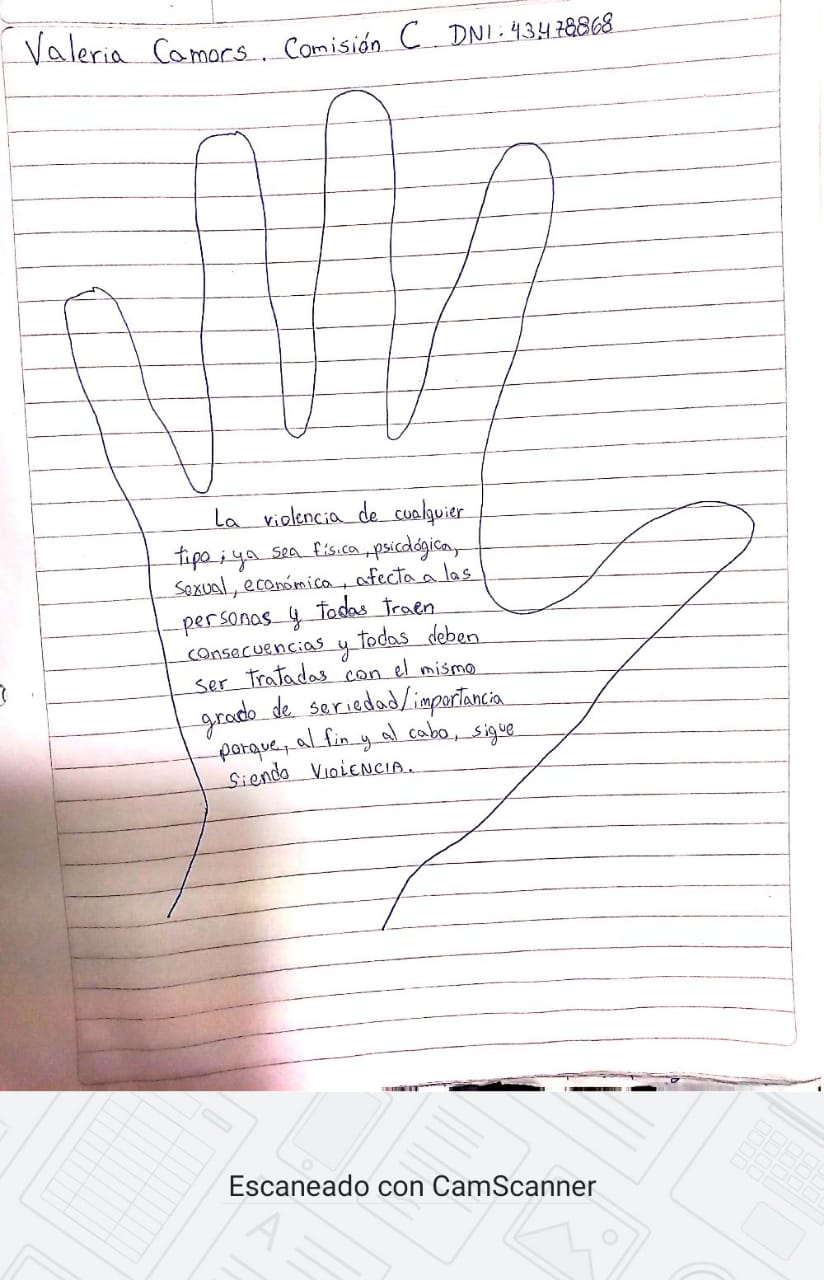 Valeria Camors. Comisión C. DNI: 43478868
La violencia de cualquier
tipo; ya sea física, psicológica,
sexual, económica, afecta a las
personas y todas traen
consecuencias y todas deben
ser tratadas con el mismo
grado de seriedad/importancia
porque, al fin y al cabo, sigue
siendo VIOLENCIA.
Escaneado con CamScanner